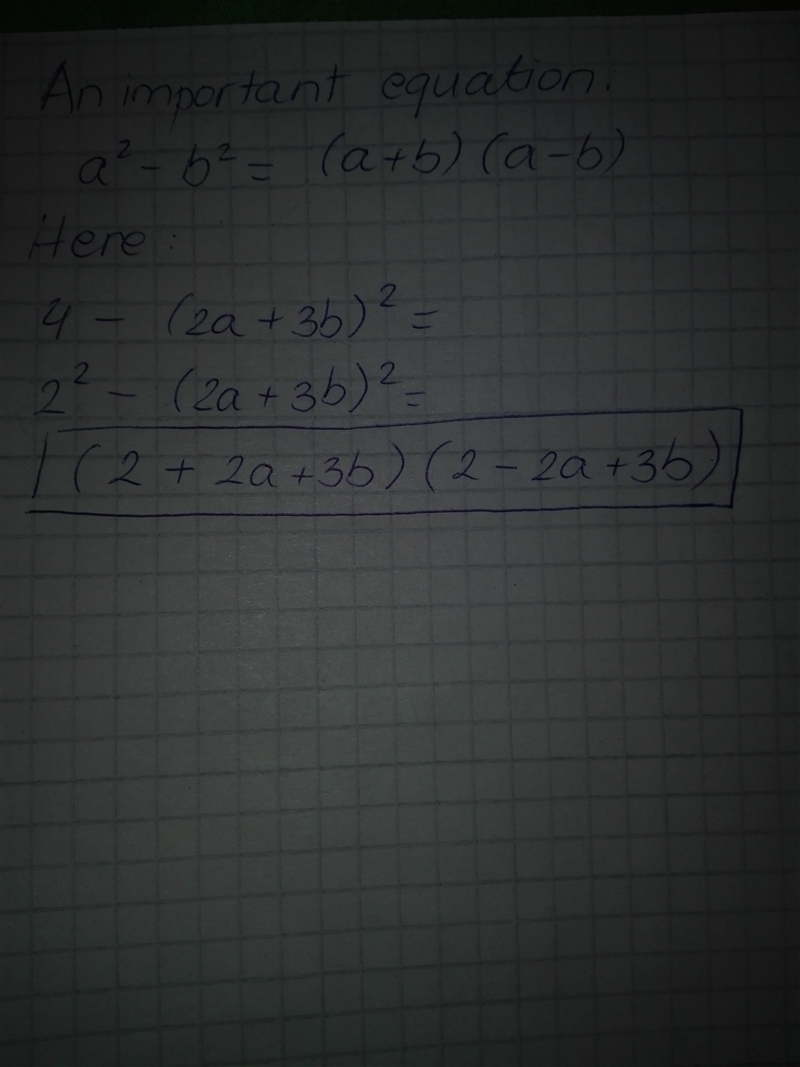 An important equation.
a² - b² = (a+b) (a-b)
Here:
4 - (2a + 3b)² =
2² - (2a + 3b)² =
(2 + 2a+3b) (2 - 2a+3b)